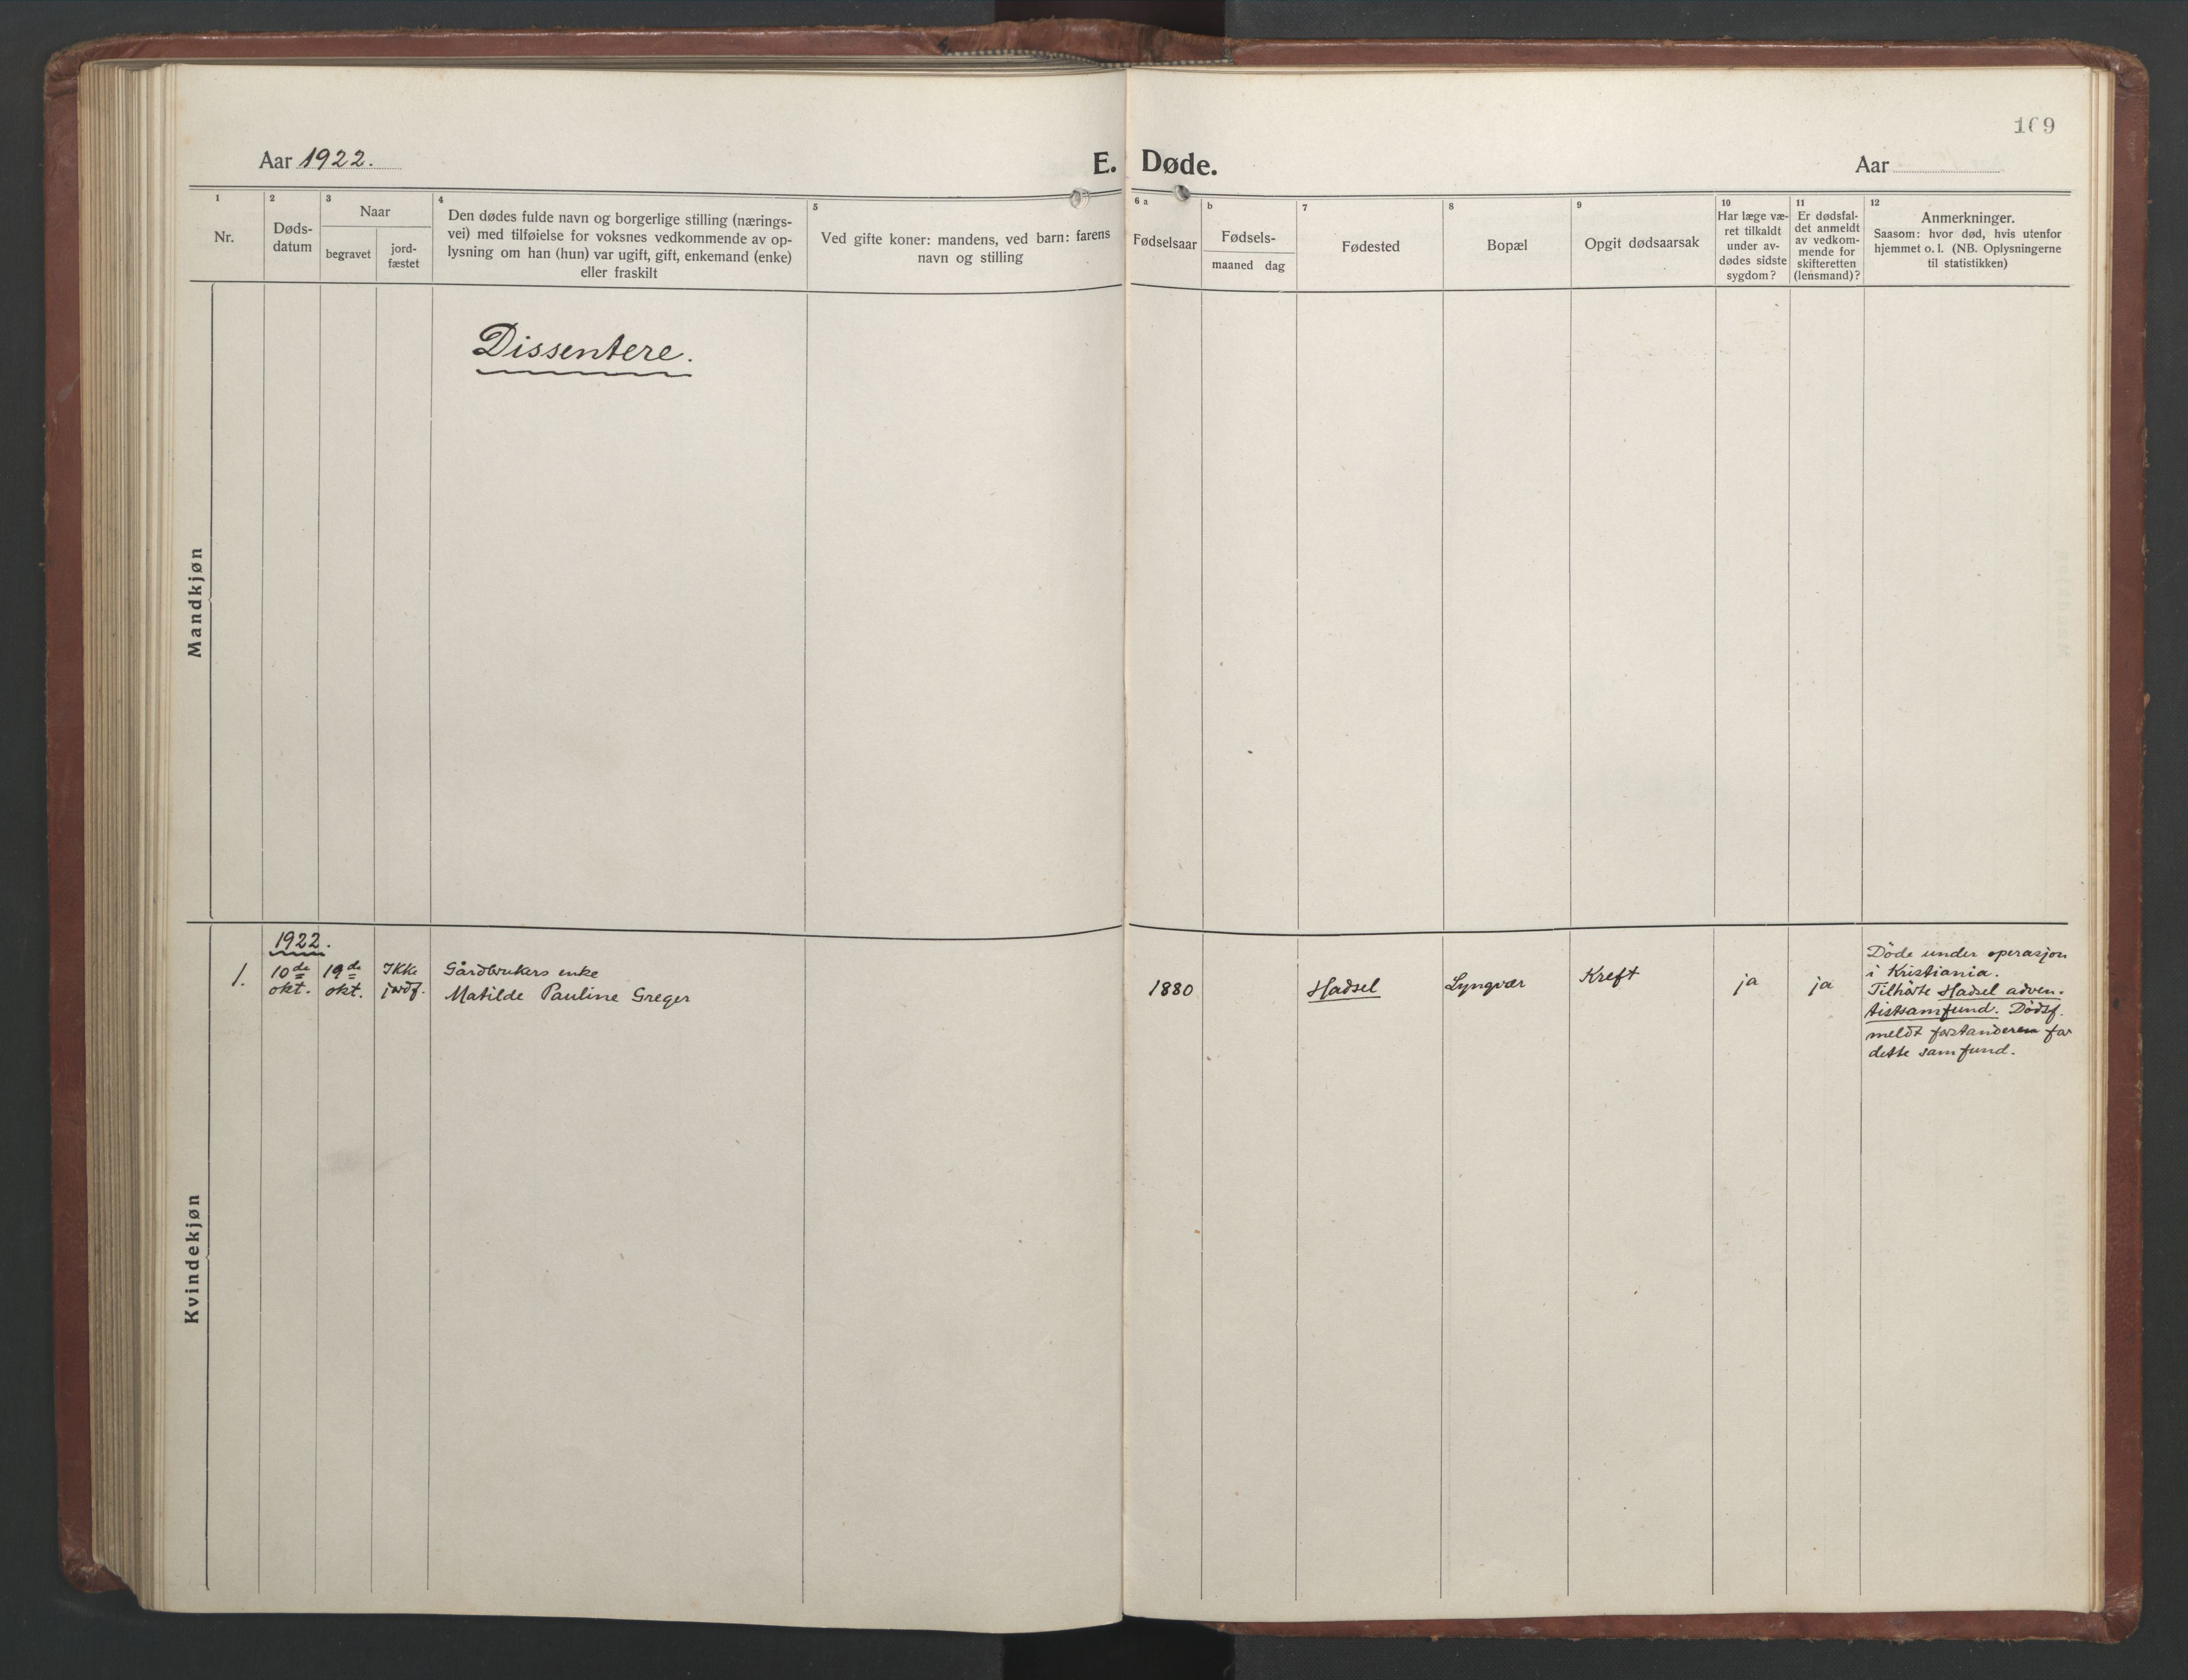 169
Aar 1922.
E. Døde.
Aar
1
2
3
4
5
6 a
b
7
8
9
10
11
12
Nr.
Døds-
datum
Naar
begravet
jord-
fæstet
Den dødes fulde navn og borgerlige stilling (nærings-
vei) med tilføielse for voksnes vedkommende av op-
lysning om han (hun) var ugift, gift, enkemand (enke)
eller fraskilt
Ved gifte koner: mandens, ved barn: farens
navn og stilling
Fødselsaar
Fødsels-
maaned dag
Fødested
Bopæl
Opgit dødsaarsak
Har læge væ-
ret tilkaldt
under av-
dødes sidste
sygdom?
Er dødsfal-
det anmeldt
av vedkom-
mende for
skifteretten
(lensmand)?
Anmerkninger.
Saasom: hvor død, hvis utenfor
hjemmet o. l. (NB. Oplysningerne
til statistikken)
Dissentere.
Mandkjøn
Kvindekjøn
1922.
1.
10de
okt.
19de
okt.
Ikke
jordf.
Gårdbrukers enke
Matilde Pauline Greger
1880
Hadsel
Lyngvær
Kreft
ja
ja
Döde under operasjon
i Kristiania.
Tilhörte Hadsel adven-
tistsamfund. Dödsf.
meldt forstanderen for
dette samfund.